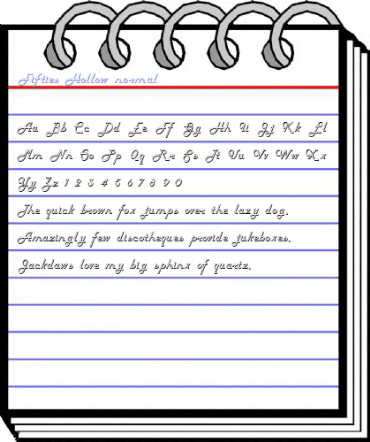 Fifties Hollow normal
Aa Bb Cc Dd Ee Ff Gg Hh Ii Jj Kk Ll
Mm Nn Oo Pp Qq Rr Ss Tt Uu Vv Ww Xx
Yy Zz 1 2 3 4 5 6 7 8 9 0
The quick brown fox jumps over the lazy dog.
Amazingly few discotheques provide jukeboxes.
Jackdaws love my big sphinx of quartz.